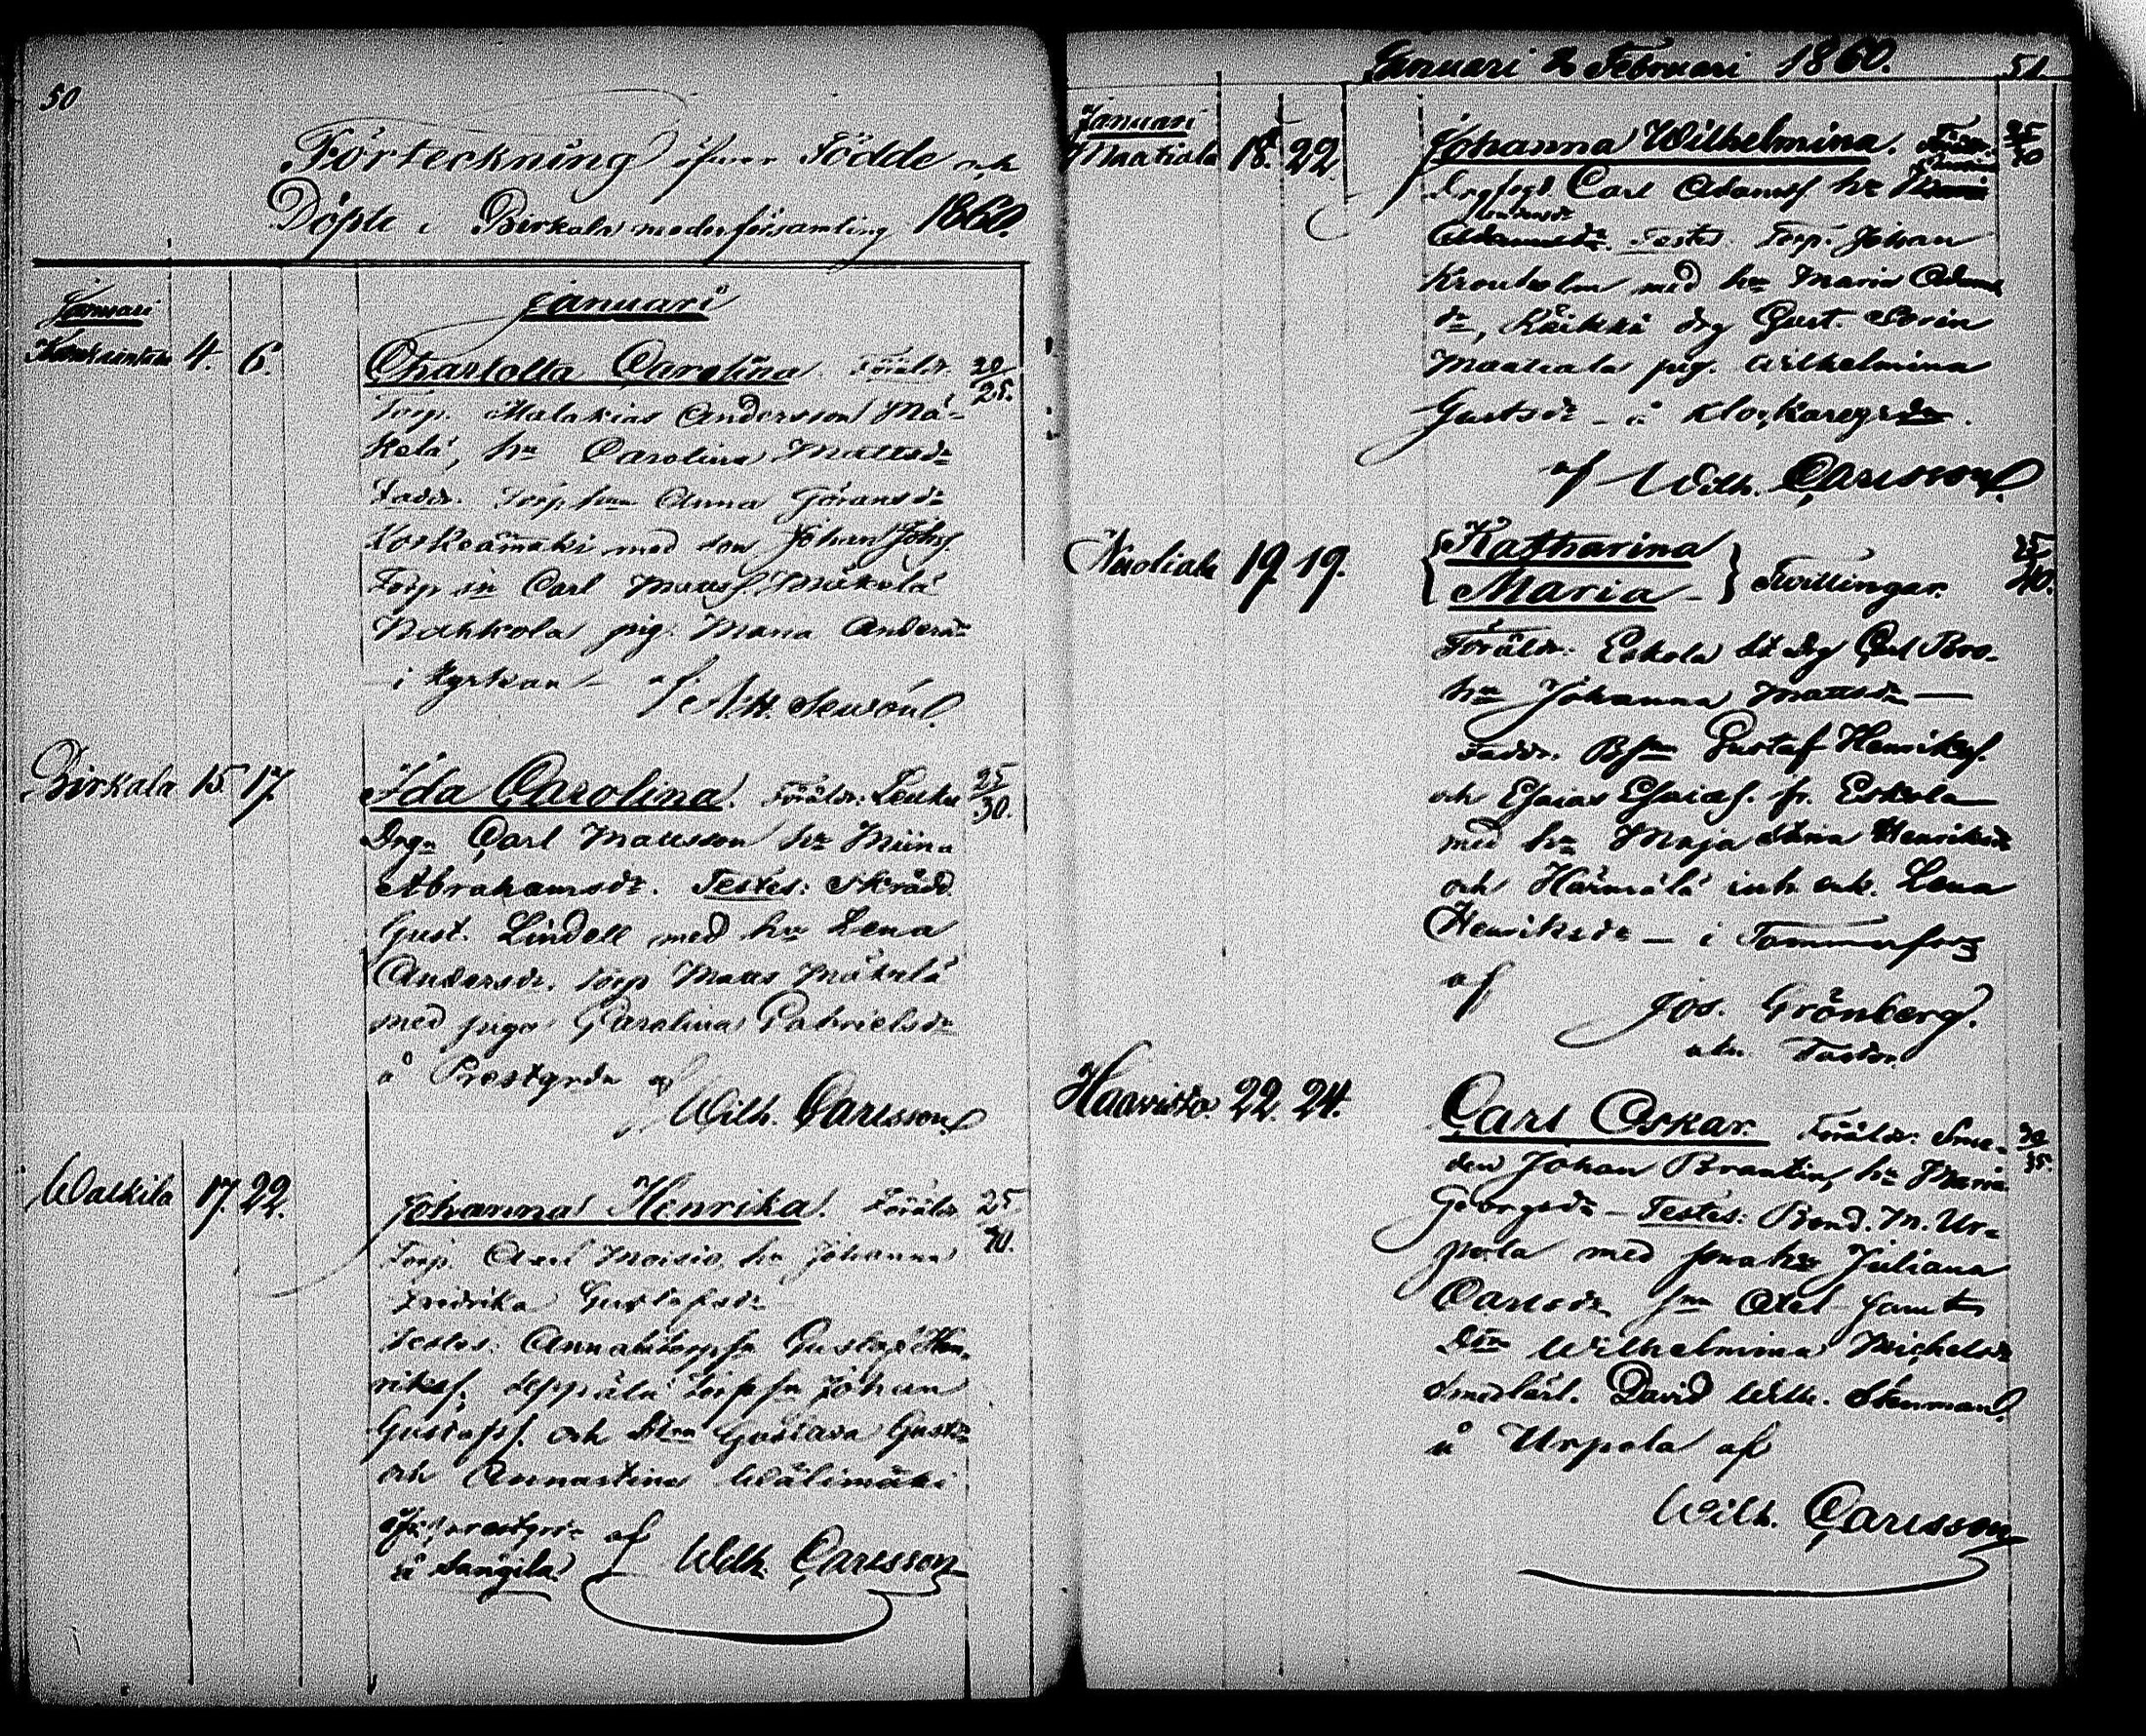 50
Förteckning öfwer Födde och
Döpte i Birkala moderförsamling 1860.
Januari
Januari
4. 6.
Charlotta Carolina. Föräldr. 20/25.
Torp. Malakias Andersson Mä-
kelä, hu Carolina Mattsdr
Faddr. Torp Anna Göransdr
Korkeamäki med son Johan Johs.
Torp sn Carl Matts. Mäkelä
Nahkola pig. Maria Andersdr
i kyrkan af
Birkala 15. 17.
Ida Carolina. Föräldr: 25/30.
Drgn Carl Mattsson hu Miina
Abrahamsdr. Testes: Skrädd.
Gust. Lindell med hu Lena
Andersdr. torp Matts Mäkelä
med piga Carolina Gabrielsdr
å Prestgrdn af
Wilh. Carlsson
Walkila 17. 22.
Johanna Henrika. Föräldr 25/
Torp. Axel Moisio, hu Johanna
Fredrika Gustafsdr
Testes: Gustaf Hen-
riksf. Seppälä Torp sn Johan
Gustafsf. och Dtrn Gustava Gustdr
och Annastina Wälimäki
å Sangila. af Wilh. Carlsson
Januari & Februari 1860. 51
Januari
Maatiala 18. 22.
Johanna Wilhelmina. 25/30
Carl Adamsf hu
Testes Torp. Johan
Kronholm med hu Maria Adams
dr, drg Gust.
Maatiala pig. Wilhelmina
Gustsdr - å Klockaregrdn.
af Wilh. Carlsson
Nuoliala 19. 19.
{Katharina
Maria -} Twillingar. 25/40.
Föräldr: Eskola drg Carl Bro-
hu Johanna Mattsdr —
Faddr. Gustaf Henriksf.
och Esaias Esaiasf. fr. Eskola
med hu Maja Stina Henriksdr
och Härmälä inh. enk. Lena
Henriksdr — i Tammerfors
af
Jos. Grönberg.
Haavisto. 22. 24.
Carl Oskar. Föräldr: Sme- 30/35.
den Johan Brantin, hu Maria
Georgsdr - Testes: Bond. M. Ur-
pola med Juliana
Carlsdr Axel samt
Dtrn Wilhelmina Michelsdr
Smedlärl. David Wilh. Stenman
å Urpola af
Wilh. Carlsson